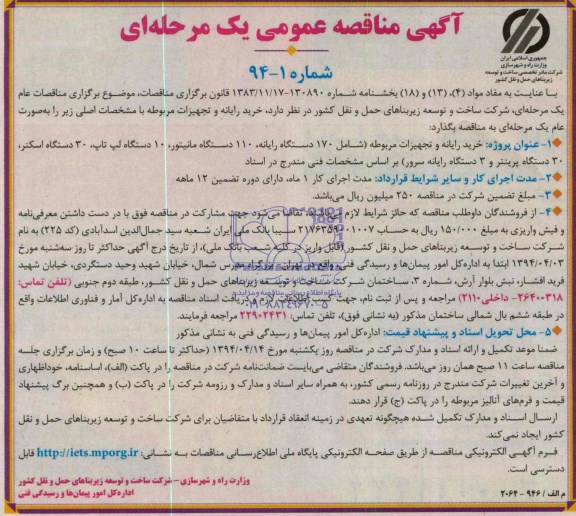 آگهی مناقصه عمومی یک مرحله‌ای
شماره ۱-۹۴
جمهوری اسلامی ایران
وزارت راه و شهرسازی
شرکت مادر تخصصی ساخت و توسعه
زیربناهای حمل و نقل کشور
با عنایت به مفاد مواد (۴)، (۱۳) و (۱۸) بخشنامه شماره ۱۳۰۸۹۰-۱۳۸۳/۱۱/۱۷ قانون برگزاری مناقصات، موضوع برگزاری مناقصات عام
یک مرحله‌ای، شرکت ساخت و توسعه زیربناهای حمل و نقل کشور در نظر دارد، خرید رایانه و تجهیزات مربوطه با مشخصات اصلی زیر را به‌صورت
عام یک مرحله‌ای به مناقصه بگذارد:
۱- عنوان پروژه: خرید رایانه و تجهیزات مربوطه (شامل ۱۷۰ دستگاه رایانه، ۱۱۰ دستگاه مانیتور، ۱۰ دستگاه لپ تاپ، ۳۰ دستگاه اسکنر،
۳۰ دستگاه پرینتر و ۳ دستگاه رایانه سرور) بر اساس مشخصات فنی مندرج در اسناد
۲- مدت اجرای کار و سایر شرایط قرارداد: مدت اجرای کار ۱ ماه، دارای دوره تضمین ۱۲ ماهه
۳- مبلغ تضمین شرکت در مناقصه ۲۵۰ میلیون ریال می‌باشد.
۴- از فروشندگان داوطلب مناقصه که حائز شرایط لازم می‌باشند، تقاضا می‌شود جهت مشارکت در مناقصه فوق با در دست داشتن معرفی‌نامه
و فیش واریزی به مبلغ ۱۵۰/۰۰۰ ریال به حساب ۲۱۷۶۳۵۹۰۱۰۰۷ سیبا بانک ملی ایران شعبه سید جمال‌الدین اسدآبادی (کد ۲۲۵) به نام
شرکت ساخت و توسعه زیربناهای حمل و نقل کشور (قابل واریز در کلیه شعب بانک ملی)، از تاریخ درج آگهی حداکثر تا روز سه‌شنبه مورخ
۱۳۹۴/۰۴/۰۳ ابتدا به اداره‌کل امور پیمان‌ها و رسیدگی فنی واقع در تهران، بزرگراه مدرس شمال، خیابان شهید وحید دستگردی، خیابان شهید
فرید افشار، نبش بلوار آرش، شماره ۳، ساختمان شرکت ساخت و توسعه زیربناهای حمل و نقل کشور، طبقه دوم جنوبی (تلفن تماس:
۲۶۴۰۰۳۱۸- داخلی ۲۱۱۰) مراجعه و پس از ثبت نام، جهت کسب اطلاعات لازم و دریافت اسناد مناقصه به اداره‌کل آمار و فناوری اطلاعات واقع
در طبقه ششم بال شمالی ساختمان مذکور (به نشانی فوق)، تلفن تماس: ۲۲۹۰۲۴۳۱ مراجعه فرمایند.
۵- محل تحویل اسناد و پیشنهاد قیمت: اداره‌کل امور پیمان‌ها و رسیدگی فنی به نشانی مذکور
ضمنا موعد تکمیل و ارائه اسناد و مدارک شرکت در مناقصه روز یکشنبه مورخ ۱۳۹۴/۰۴/۱۴ (حداکثر تا ساعت ۱۰ صبح) و زمان برگزاری جلسه
مناقصه ساعت ۱۱ صبح همان روز می‌باشد. فروشندگان متقاضی می‌بایست ضمانت‌نامه شرکت در مناقصه را در پاکت (الف)، اساسنامه، خوداظهاری
و آخرین تغییرات شرکت مندرج در روزنامه رسمی کشور، به همراه سایر اسناد و مدارک و رزومه شرکت را در پاکت (ب) و همچنین برگ پیشنهاد
قیمت و فرم‌های آنالیز مربوطه را در پاکت (ج) قرار دهند.
ارسال اسناد و مدارک تکمیل شده هیچگونه تعهدی در زمینه انعقاد قرارداد با متقاضیان برای شرکت ساخت و توسعه زیربناهای حمل و نقل
کشور ایجاد نمی‌کند.
فرم آگهی الکترونیکی مناقصه از طریق صفحه الکترونیکی پایگاه ملی اطلاع‌رسانی مناقصات به نشانی: http://iets.mporg.ir قابل
دسترسی است.
وزارت راه و شهرسازی - شرکت ساخت و توسعه زیربناهای حمل و نقل کشور
اداره‌کل امور پیمان‌ها و رسیدگی فنی
م الف / ۹۴۶ - ۲۰۶۴